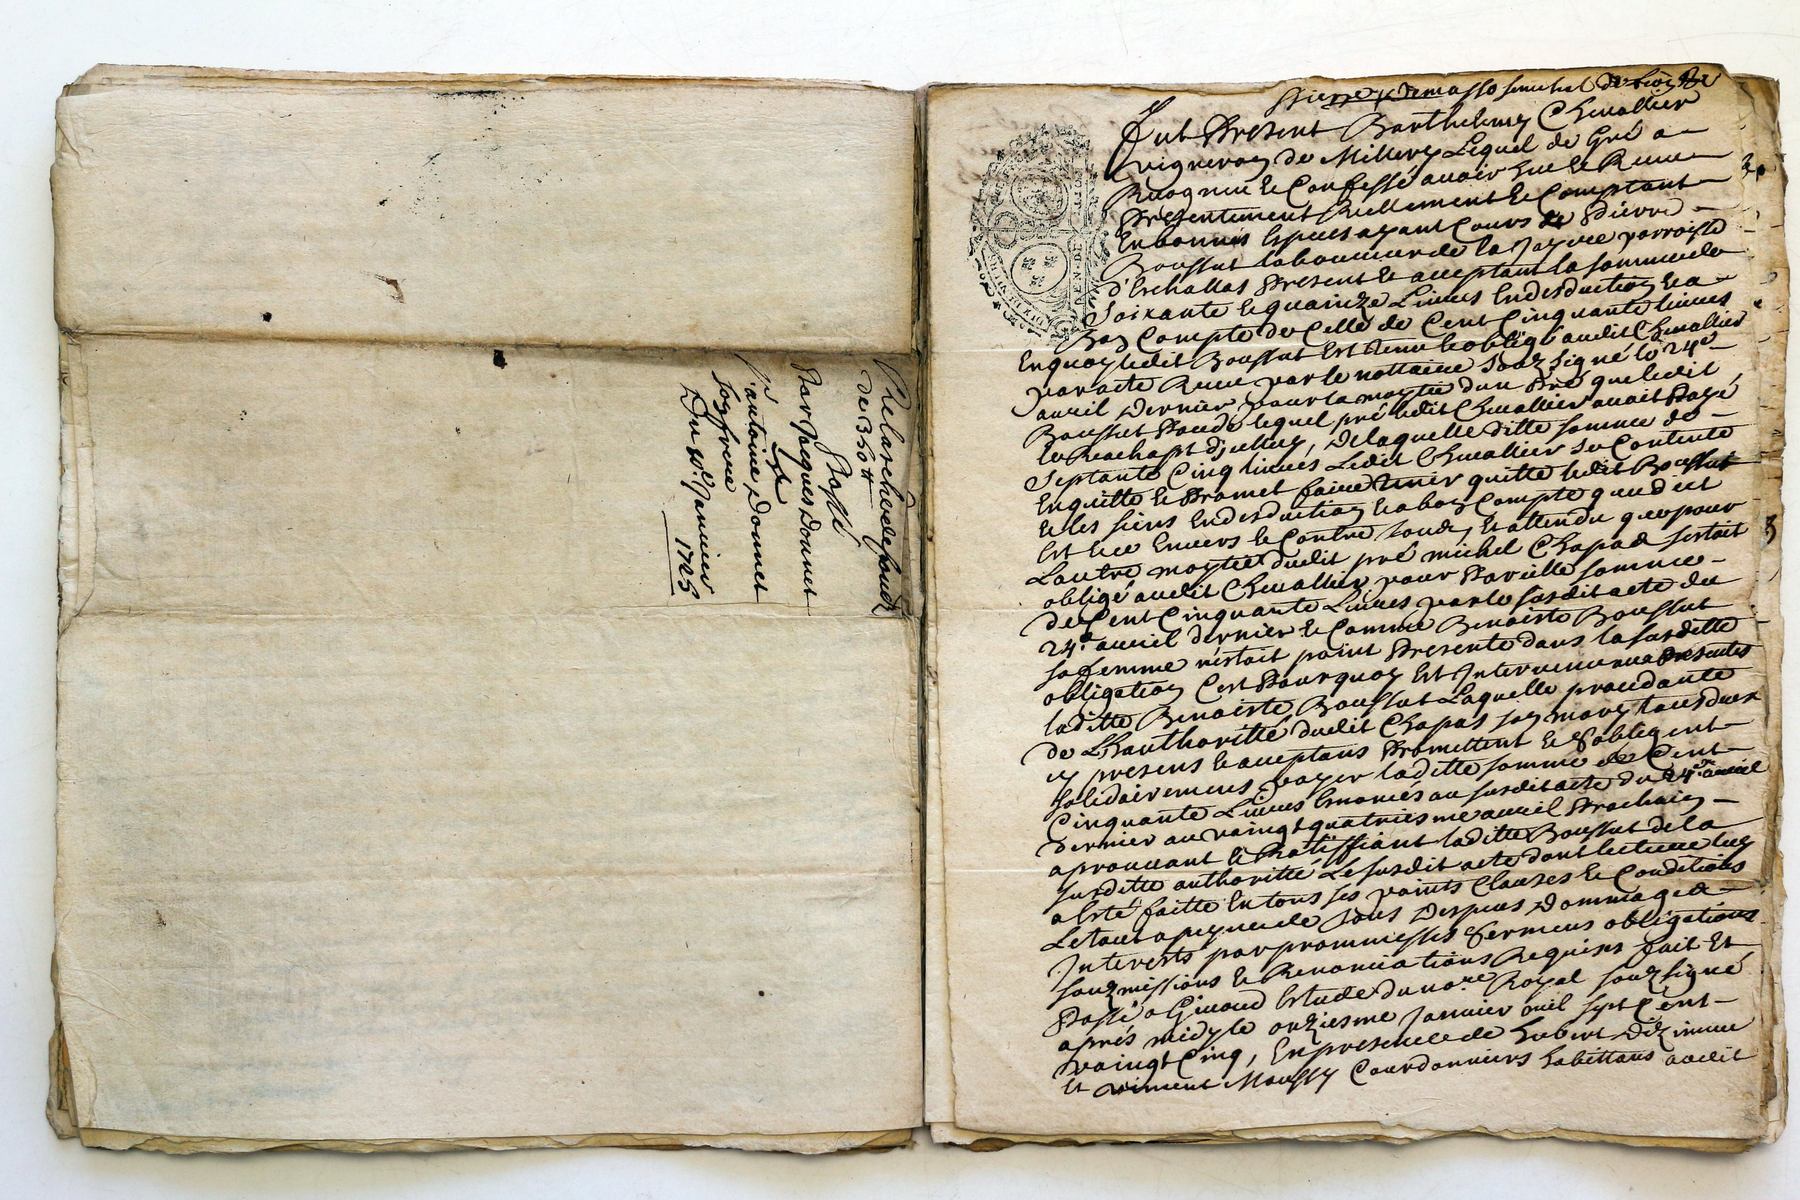 Relasche de fondz
de 350 ₶
Passé
Par Jacques Donnet
à
Sr antoine Donnet
Son frere
Du 10e Janvier
1725
Pierre
Fut Present Barthelemy Chevallier
vigneron de Millery Lequel de Gré a
Recognu et Confessé avoir Eu et Receu
Presentement Reellement et Comptant
En bonnes Especes ayant Cours de Pierre
Boussut laboureur de la parroisse
d'Eschallas Present et acceptant la somme de
Soixante et quainze Livres En desduction et a
Bon Compte de Celle de Cent Cinquante livres
En quoy ledit Boussut Est tenu et obligé audit Chevallier
par acte Receu par le nottaire Soubzsigné le 24e
avril Dernier pour la moytié d'un Pré que ledit
Boussut Possede lequel pré ledit Chevallier avoit
le Reachapt d'jcelluy, De laquelle ditte somme de
Septante Cinq livres Ledit Chevallier Se Contente
En quitte et Promet faire tenir quitte ledit Boussut
et les siens En desduction et a bon Compte que dict
Est Envers et Contre tous, Et attendu que pour
Lautre moytié dudit pré michel Chapas sestoit
obligé audit Chevallier pour Pareille somme
de Cent Cinquante Livres par le susdit acte du
24e avril dernier et Comme Benoiste Boussut
sa femme n'estoit point Presente dans la susditte
obligation C'est Pourquoy Est Intervenue aux Presentes
laditte Benoiste Boussut Laquelle procedante
de L'hauthoritté dudit Chapas son mary tous deux
cy presens et acceptans Promettent et S'obligent
solidairement payer laditte somme de Cent
Cinquante Livres Enoncés au susdit acte du 24e avril
dernier au vaingt quatriesme avril Prochain
aprouvant et Ratiffiant laditte Boussut de la
susditte authoritté Le susdit acte dont lecture luy
a Esté faitte En tous ses points Clauses et Conditions
Le tout a peyne de tous Despens Dommages et
Interests par prommesses sermens obligations
soubzmissions et Renonciations Requises fait Et
Passé a Givord Estude du nore Royal soubzsigné
aprés midy le onziesme Janvier mil sept Cent
vaingt Cinq, En presence de hubert
Et vincent Moussy Courdonniers habittans audit